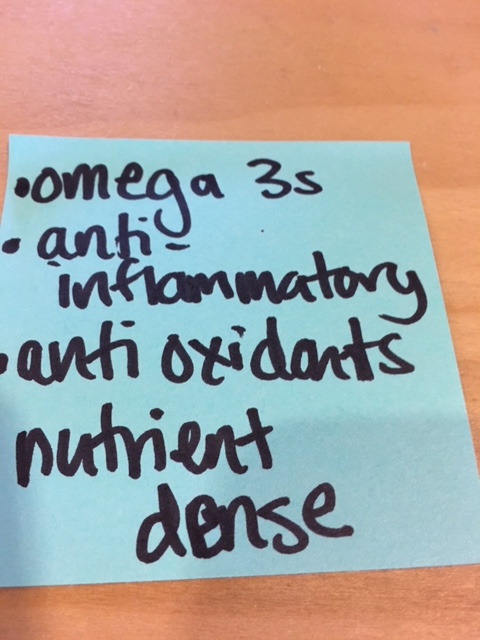 •omega 3s
• anti-
inflammatory
•anti oxidants
nutrient
dense